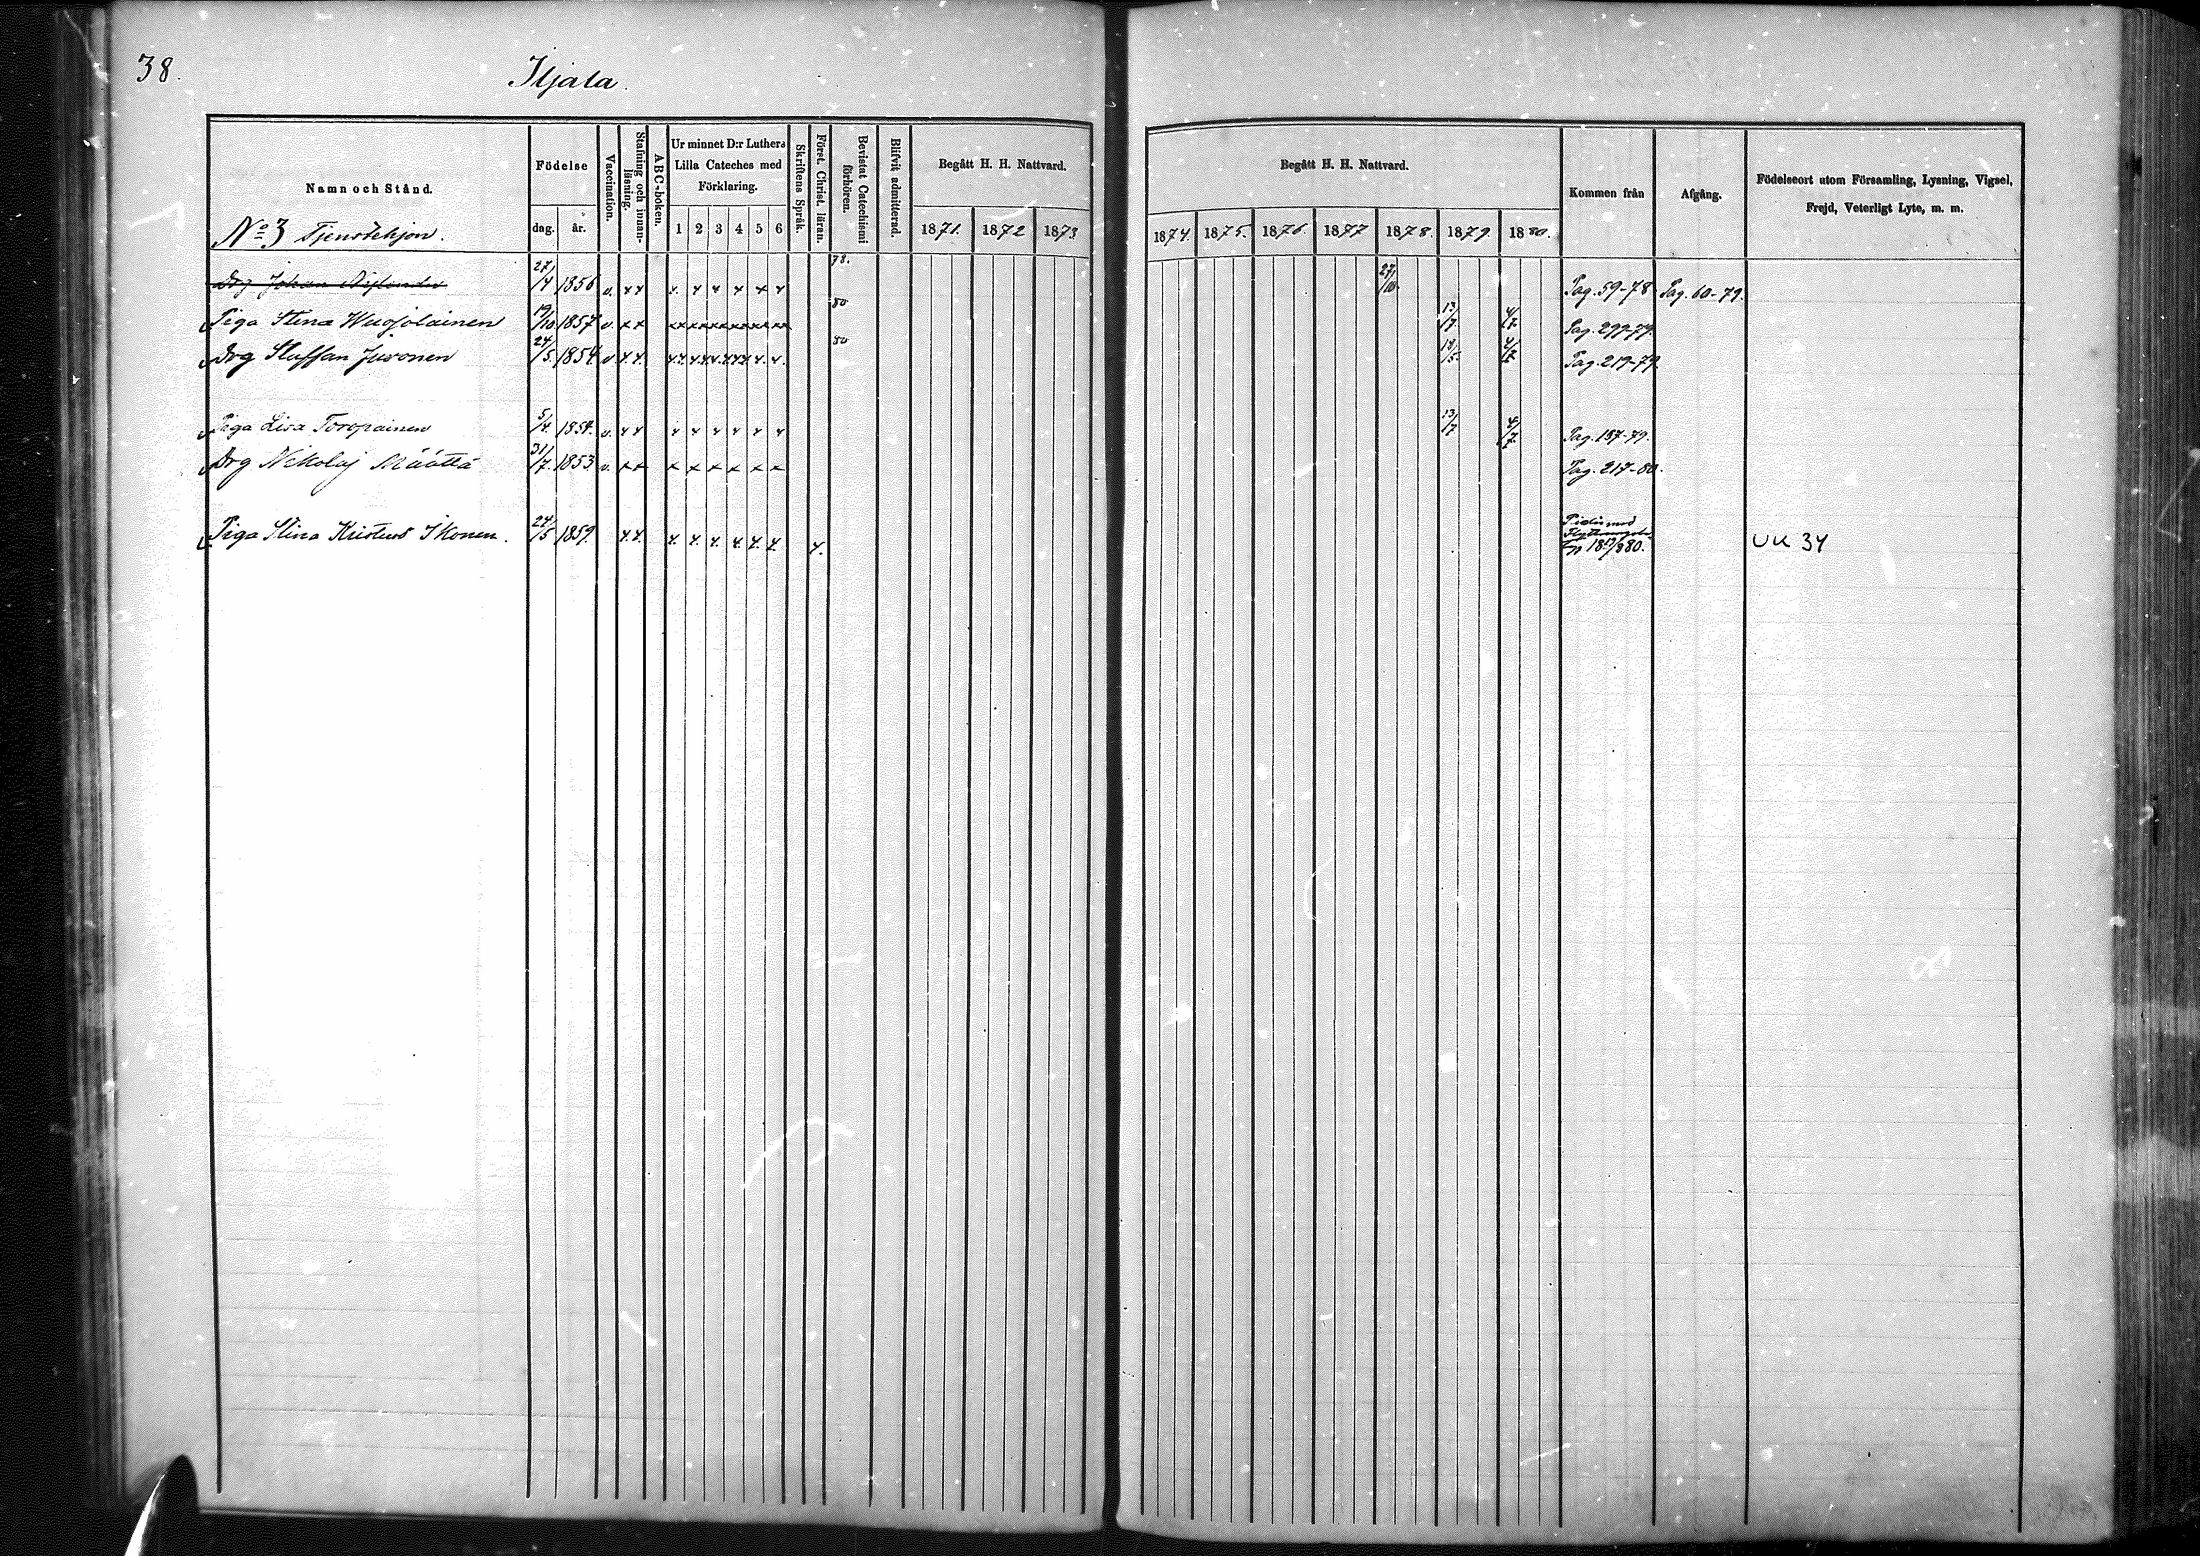 38.
Iljala.
Namn och Stånd.
Födelse
dag. år.
Vaccination.
Stafning och innanläsning.
ABC-boken.
Ur minnet D:r Luthers
Lilla Cateches med
Förklaring.
1 2 3 4 5 6
Skriftens Språk.
Föret. Christ. läran.
Bevistat Catechismi förhören.
Blifvit admitterad.
Begått H. H. Nattvard.
1871. 1872 1873
Begått H. H. Nattvard.
1874. 1875. 1876. 1877 1878. 1879. 1880.
Kommen från
Afgång.
Födelseort utom Församling, Lysning, Vigsel,
Frejd, Veterligt Lyte, m. m.
No 3 Tjenstehjon.
Drg Johan 27/4 1856 v. x x x x x x x x 78. 27/10 Pag. 59-78 Pag. 60-79.
Piga Stina Wuojolainen 19/10 1857 v. x x xxxxxxxxxxxx 80 13/7. 4/7 Pag. 299-79.
Drg Staffan Juvonen 24/5. 1854 v x. x. x.x. x x x.x. x x x x. x. 80 18/5. 4/7 Pag. 219-79.
Piga Lisa Toropainen 5/4. 1854. v. x x x x x x x x 13/7 4/7. Pag. 187-79.
Drg Nikolaj Määttä 31/7. 1853 v. x x x x x x x x Pag. 217-80.
Piga Stina Kristina Ikonen. 24/5 1859. x. x. x. x. x. x. x. x. x. med
1880.
UK 34